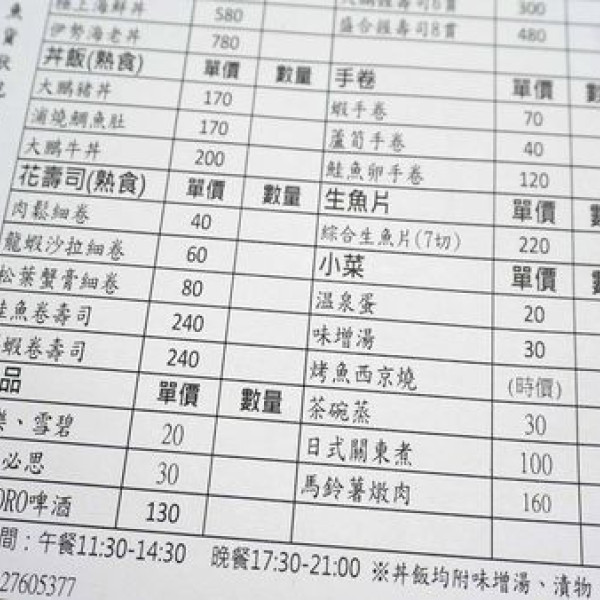 魚
貨
狀
極上海鮮丼 580
伊勢海老丼 780
丼飯(熟食) 單價 數量
大鵬豬丼 170
蒲燒鯛魚肚 170
大鵬牛丼 200
花壽司(熟食) 單價 數量
肉鬆細卷 40
龍蝦沙拉細卷 60
松葉蟹膏細卷 80
鮭魚卷壽司 240
蝦卷壽司 240
品 單價 數量
、雪碧 20
必思 30
ORO啤酒 130
握壽司6貫 300
盛合握壽司8貫 480
手卷 單價 數
蝦手卷 70
蘆筍手卷 40
鮭魚卵手卷 120
生魚片 單價
綜合生魚片(7切) 220
小菜 單價
溫泉蛋 20
味增湯 30
烤魚西京燒 (時價)
茶碗蒸 30
日式關東煮 100
馬鈴薯燉肉 160
間：午餐11:30-14:30 晚餐17:30-21:00 ※丼飯均附味增湯、漬物
27605377